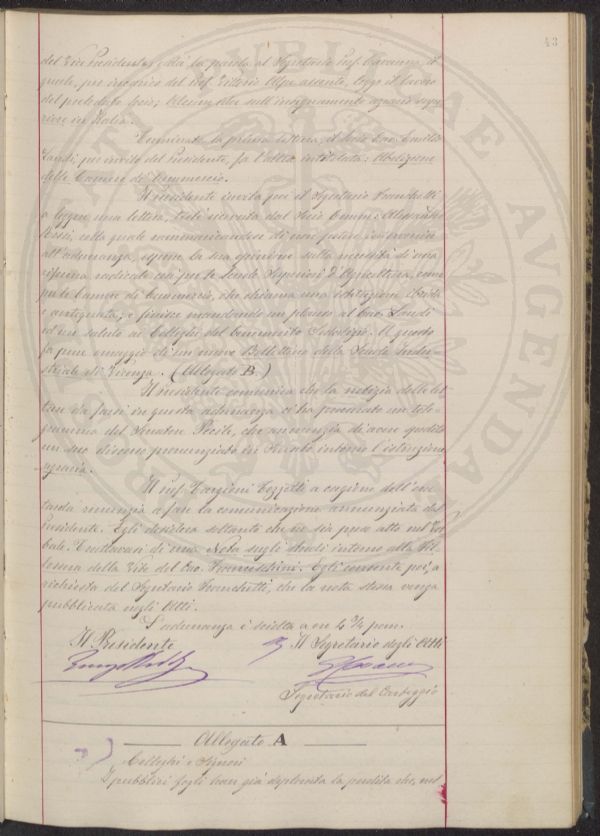 43
del Vice Presidente, e dà la parola al Segretario prof. Caruso, il
quale, per incarico del prof. Vittorio Alpe assente, legge il lavoro
del predetto socio; sull'insegnamento agrario supe-
riore in Italia.
Terminata la prima lettura, il socio Cav. Emilio
Landi, per invito del Presidente, fa l'altra intitolata: Abolizione
delle Camere di Commercio.
Il Presidente invita poi il Segretario Franchetti
a leggere una lettera, inviata dal Socio Comm: Alessandro
Rossi, nella quale rammaricandosi di non potere intervenire
all'adunanza, espone la sua opinione sulla necessità di una
riforma radicale così per le Scuole Superiori d'Agricoltura, come
per le Camere di Commercio, che chiama una istituzione ibrida
e antiquata; e finisce mandando un plauso al Cav. Landi
ed un saluto ai Colleghi del Sodalizio. A questo
fa pure omaggio di un nuovo Bollettino della Scuola Indu-
striale di Vicenza. (Allegato B.)
Il Presidente comunica che la notizia delle let-
ture da farsi in questa adunanza ci ha procurato un tele-
gramma del Senatore Pecile, che annunzia di avere spedito
un suo discorso pronunziato in Senato intorno l'istruzione
agraria.
Il prof. Targioni Tozzetti a cagione dell'ora
tarda rinunzia a fare la comunicazione annunziata dal
Presidente. Egli desidera soltanto che ne sia preso atto nel Ver-
bale. Trattavasi di una Nota sugli studi intorno alla Fil-
lossera della Vite del Cav. Franceschini. Egli consente poi, a
richiesta del Segretario Franchetti, che la nota stessa venga
pubblicata negli Atti.
L'adunanza è sciolta a ore 4 3/4 pom.
Il Presidente Il Segretario degli Atti
Segretario del Carteggio
Allegato A
Colleghi e Signori
I pubblici fogli han già deplorata la perdita che, nel